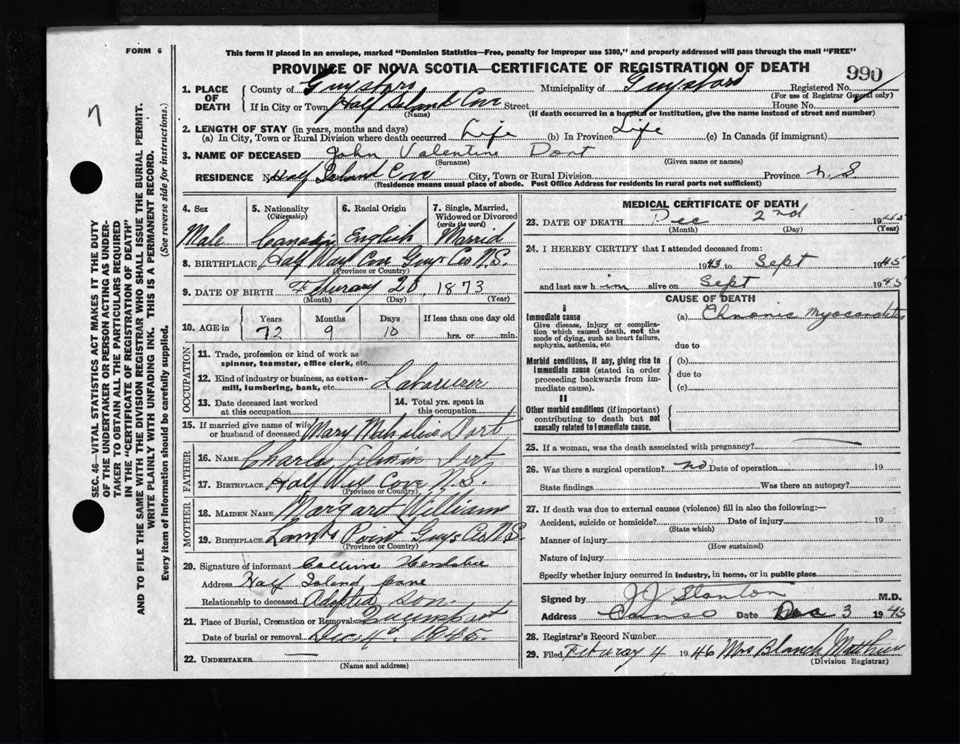 FORM 6
This form if placed in an envelope, marked "Dominion Statistics—Free, penalty for improper use $300," and properly addressed will pass through the mail "FREE"
PROVINCE OF NOVA SCOTIA—CERTIFICATE OF REGISTRATION OF DEATH
990
1. PLACE OF DEATH
County of Guysboro Municipality of Guysboro Registered No.
(For use of Registrar General only)
If in City or Town Half Island Cove Street House No.
(Name) (If death occurred in a hospital or institution, give the name instead of street and number)
2. LENGTH OF STAY (in years, months and days)
(a) In City, Town or Rural Division where death occurred Life (b) In Province Life (c) In Canada (if immigrant)
3. NAME OF DECEASED John Valentine Dort
(Surname) (Given name or names)
RESIDENCE No. Half Island Cove City, Town or Rural Division Province N.S.
(Residence means usual place of abode. Post Office Address for residents in rural parts not sufficient)
4. Sex 5. Nationality (Citizenship) 6. Racial Origin 7. Single, Married, Widowed or Divorced (write the word)
Male Canadian English Married
8. BIRTHPLACE Half Way Cove Guys Co. N.S.
(Province or Country)
9. DATE OF BIRTH 20, 1873
(Month) (Day) (Year)
10. AGE in Years Months Days If less than one day old
72 9 10 hrs. or min.
OCCUPATION
11. Trade, profession or kind of work as spinner, teamster, office clerk, etc.
12. Kind of industry or business, as cotton-mill, lumbering, bank, etc. Labourer
13. Date deceased last worked at this occupation 14. Total yrs. spent in this occupation
15. If married give name of wife or husband of deceased Mary Dort
FATHER
16. NAME Charles
17. BIRTHPLACE Half Way Cove N.S.
(Province or Country)
MOTHER
18. MAIDEN NAME Margaret Williams
19. BIRTHPLACE Point Guys Co. N.S.
(Province or Country)
20. Signature of informant
Address Half Island Cove
Relationship to deceased Adopted son
21. Place of Burial, Cremation or Removal
Date of burial or removal Dec 4th 1945.
22. UNDERTAKER
(Name and address)
MEDICAL CERTIFICATE OF DEATH
23. DATE OF DEATH Dec 2nd 1945
(Month) (Day) (Year)
24. I HEREBY CERTIFY that I attended deceased from:
1943 to Sept 1945
and last saw him alive on Sept 1945
CAUSE OF DEATH
I
Immediate cause (a) Chronic Myocarditis
Give disease, injury or complication which caused death, not the mode of dying, such as heart failure, asphyxia, asthenia, etc
due to
Morbid conditions, if any, giving rise to immediate cause (stated in order proceeding backwards from immediate cause). (b)
due to
(c)
II
Other morbid conditions (if important) contributing to death but not causally related to immediate cause.
25. If a woman, was the death associated with pregnancy?
26. Was there a surgical operation? no Date of operation 19
State findings Was there an autopsy?
27. If death was due to external causes (violence) fill in also the following:—
Accident, suicide or homicide? Date of injury 19
(State which)
Manner of injury
(How sustained)
Nature of injury
Specify whether injury occurred in industry, in home, or in public place
Signed by J J Stanton M.D.
Address Canso Date Dec 3 1945
28. Registrar's Record Number
29. Filed 4 1946 Mrs Blanch
(Division Registrar)
SEC. 46—VITAL STATISTICS ACT MAKES IT THE DUTY
OF THE UNDERTAKER OR PERSON ACTING AS UNDER-
TAKER TO OBTAIN ALL THE PARTICULARS REQUIRED
IN THE "CERTIFICATE OF REGISTRATION OF DEATH"
AND TO FILE THE SAME WITH THE DIVISION REGISTRAR WHO SHALL ISSUE THE BURIAL PERMIT.
WRITE PLAINLY WITH UNFADING INK. THIS IS A PERMANENT RECORD.
Every item of information should be carefully supplied. (See reverse side for instructions.)